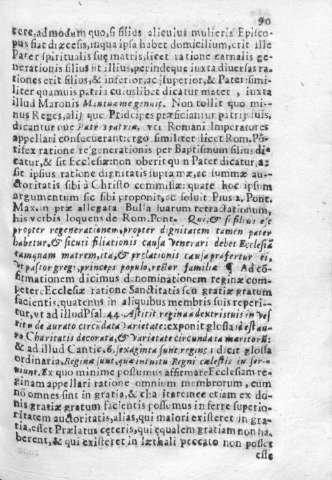 90
tere, ad modum quo, si filius alicuius mulieris Episco-
pus fiat diœcesis, in qua ipsa habet domicilium, erit ille
Pater spiritualis suę matris, licet ratione carnalis ge-
nerationis filius sit illius, perindeque iuxta diuersas ra-
tiones erit filius, & inferior, ac superior, & Pater: simi-
liter quamuis patria cuiuslibet dicatur mater, iuxta
illud Maronis Mantua me genuit. Non tollit quo mi-
nus Reges, alijque Principes præficiantur patrijs suis,
dicantur que Patres patriæ, vti Romani Imperatores
appellari consueuerant: ergo similiter licet Rom. Pon-
tifex ratione regenerationis per Baptismum filius di-
catur, & sit Ecclesiæ: non oberit quin Pater dicatur, ac
sit ipsius ratione dignitatis supremæ, ac summæ au-
ctoritatis sibi à Christo commissæ: quate hoc ipsum
argumentum se sibi proponit, ac soluit Pius 2. Pont.
Max. in præ allegata Bulla suarum retractationum,
his verbis loquens de Rom. Pont. Qui, & si filius est
propter regenerationem, propter dignitatem tamen pater
habetur, & sicuti filiationis causa Venerari debet Ecclesiā
tamquam matrem, ita, & prælationis causa præfertur ei,
vt pastor gregi, princeps populo, rector familiæ ¶ Ad cō-
firmationem dicimus denominationem reginæ com-
petere Ecclesiæ ratione Sanctitatis seu gratiæ gratum
facientis, quatenus in aliquibus membris suis reperi-
tur, vt ad illud Psal. 44. Astitit regina à dextris tuis in ves-
titu de aurato circūdata Varietate: exponit glossa, idest au-
ro Charitatis decorata, & Varietate circundata meritorū:
& ad illud Cantic. 6. sexaginta sunt reginæ; dicit glossa
ordinaria, Reginæ sunt, quæ intuitu Regni cælestis in ser-
uiunt. Ex quo minime possumus affirmare Ecclesiam re-
ginam appellari ratione omnium membrorum, cum
nō omnes sint in gratia, & cha itate: nec etiam ex do-
nis gratiæ gratum facientis possumus in ferre superio-
ritatem auctoritatis, alias, qui maiori existeret in gra-
tia, esset Prælatus ceteris, qui equalem gratiam non ha-
berent, & qui existeret in læthali peccato non posset
esse